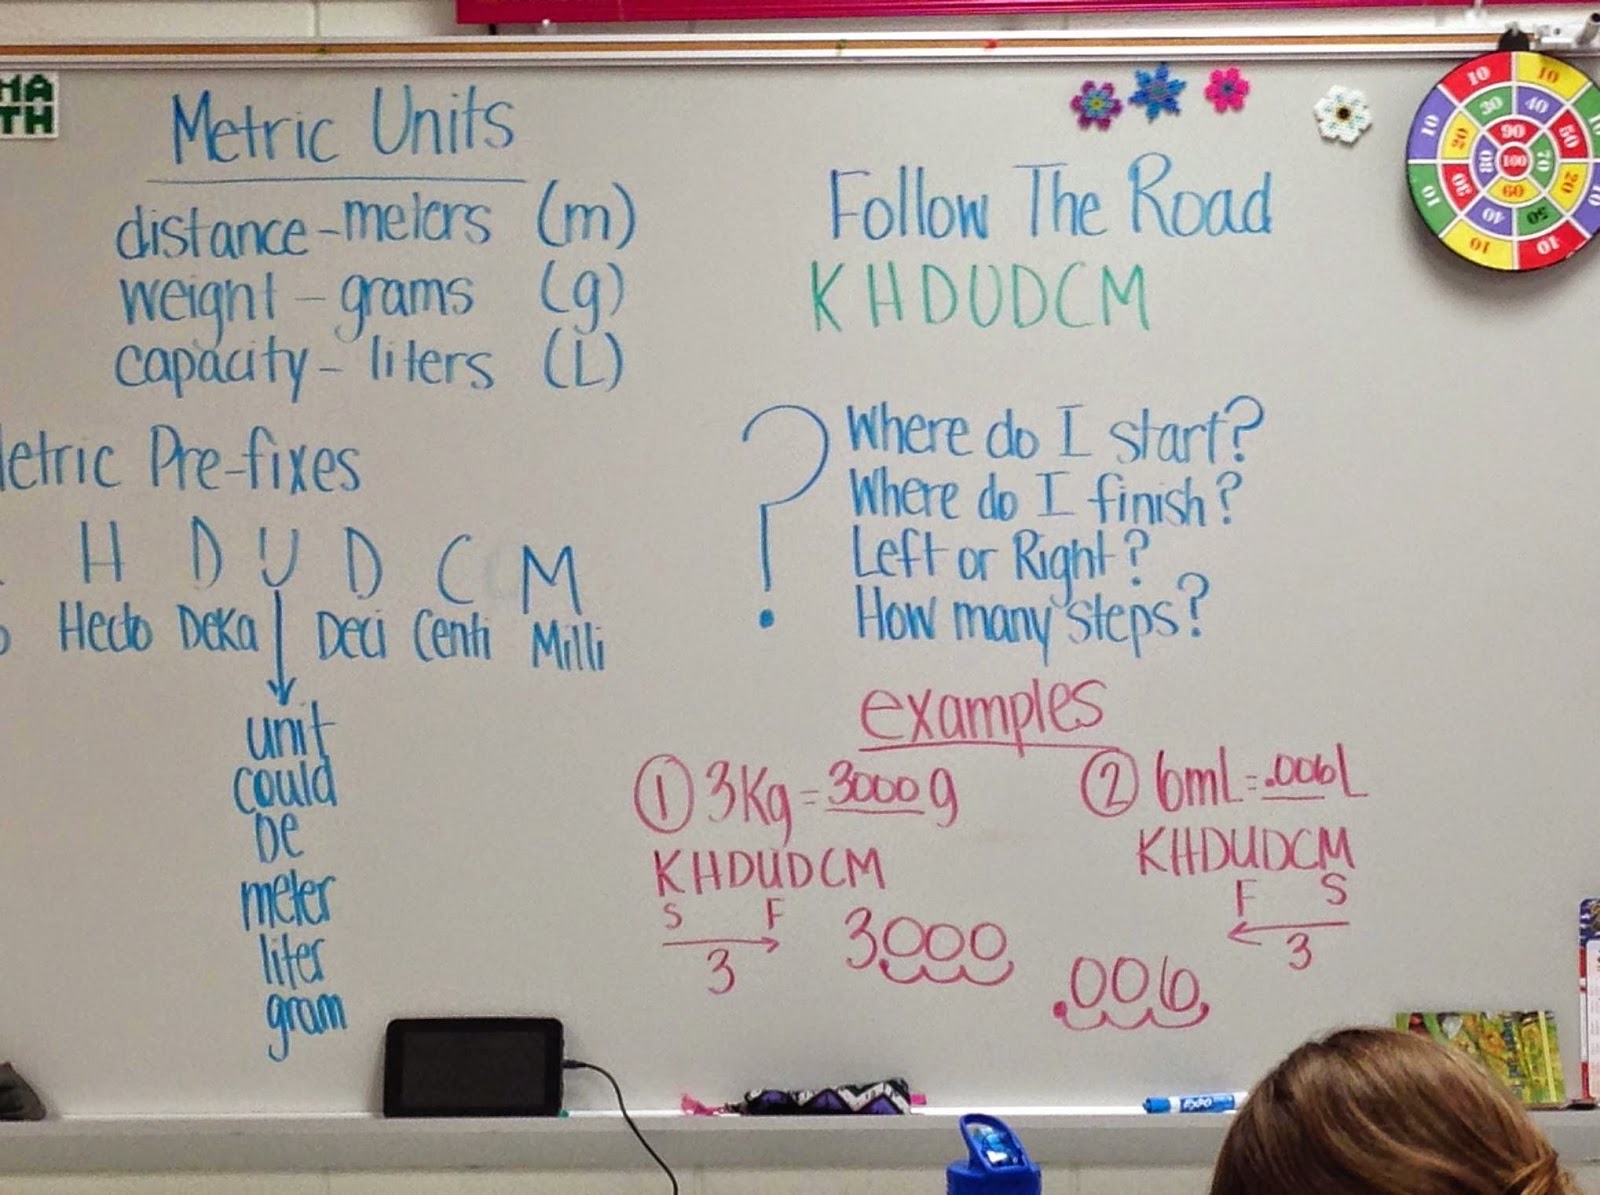 MA
TH
Metric Units
distance-meters (m)
weight-grams (g)
capacity-liters (L)
etric Pre-fixes
H D U D C M
o Hecto Deka Deci Centi Milli
unit
could
be
meter
liter
gram
Follow The Road
KHDUDCM
? Where do I start?
Where do I finish?
Left or Right?
How many steps?
examples
① 3Kg=3000g
KHDUDCM
S F
3
3000
② 6mL=.006L
KHDUDCM
F S
3
.006
10 10 10 10 10 10 10
30 40 50 20 50 40 30 20
90 70 60 80
100
EXPO